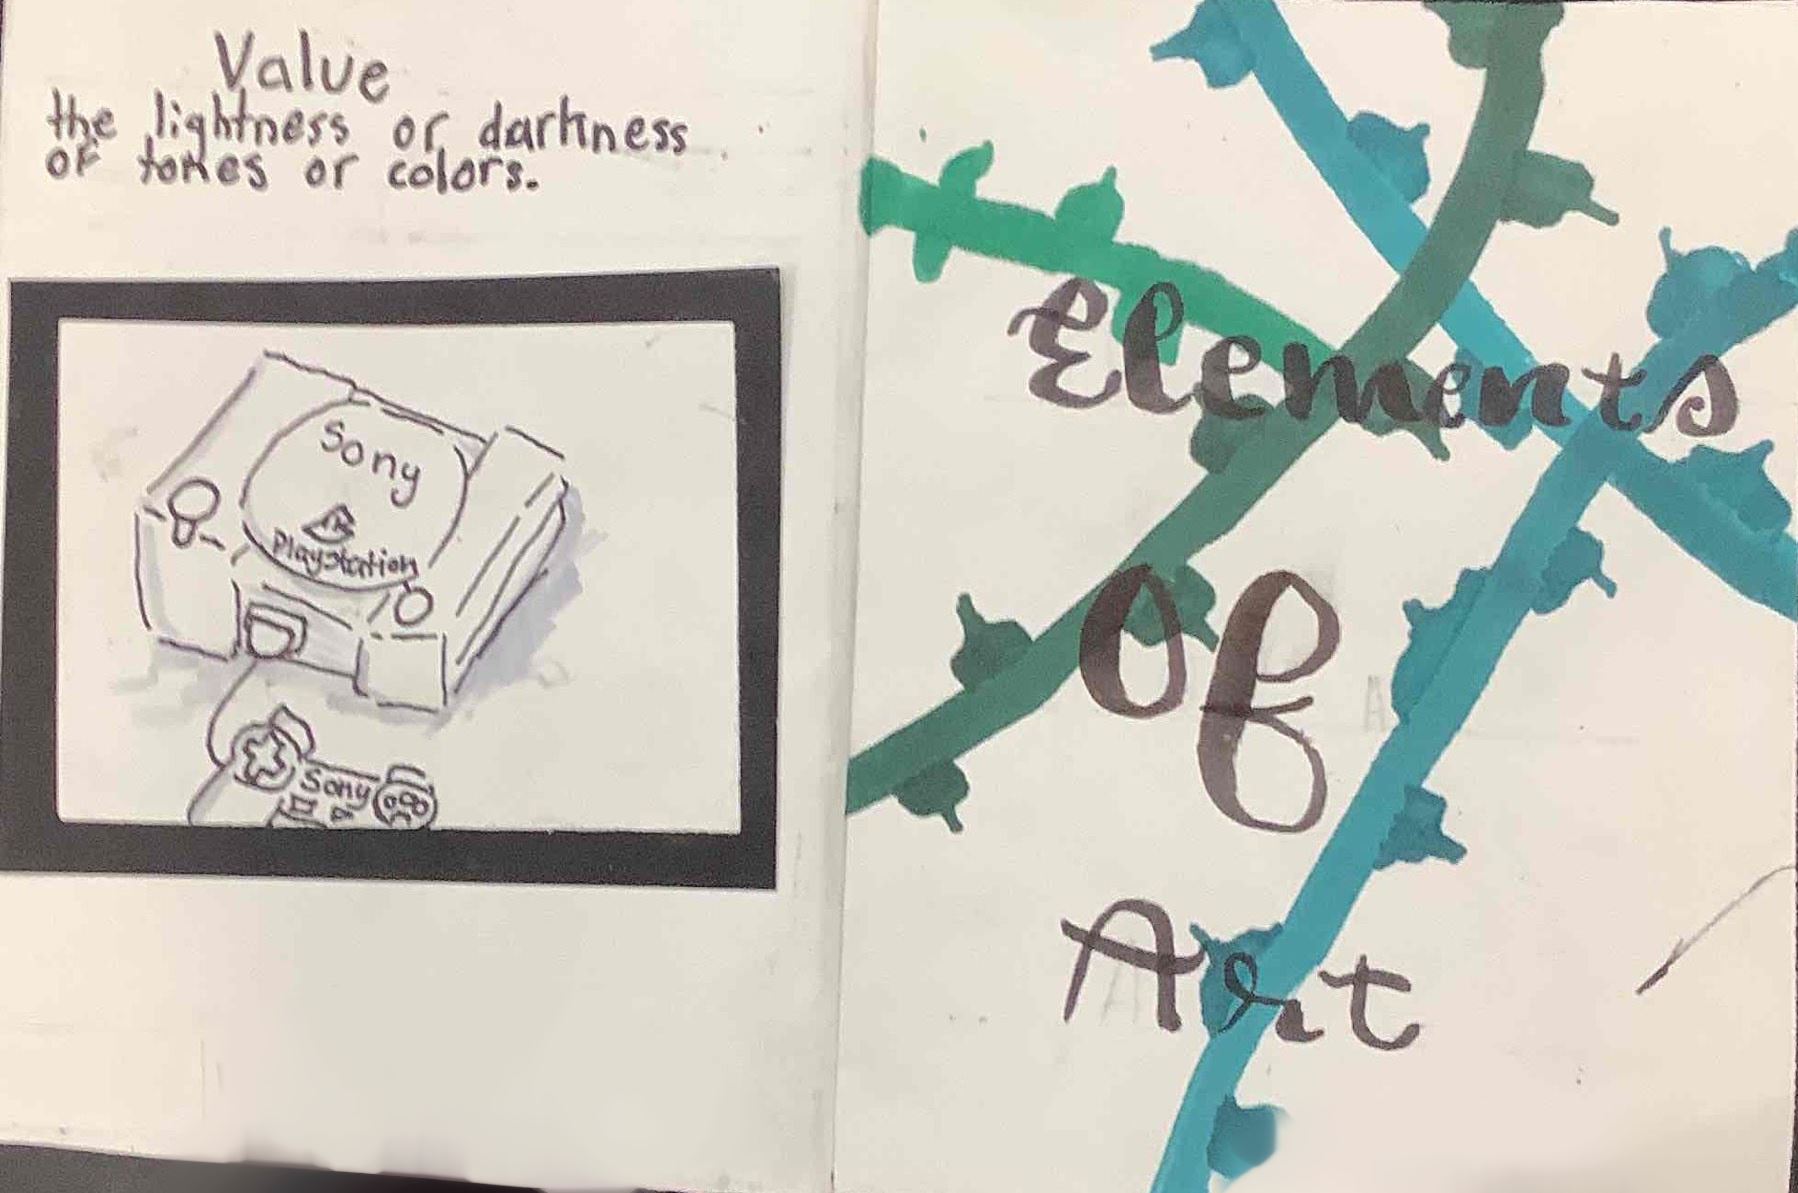 Value
the lightness or darkness
of tones or colors.
Sony
Playstation
Sony
Elements
Of
Art